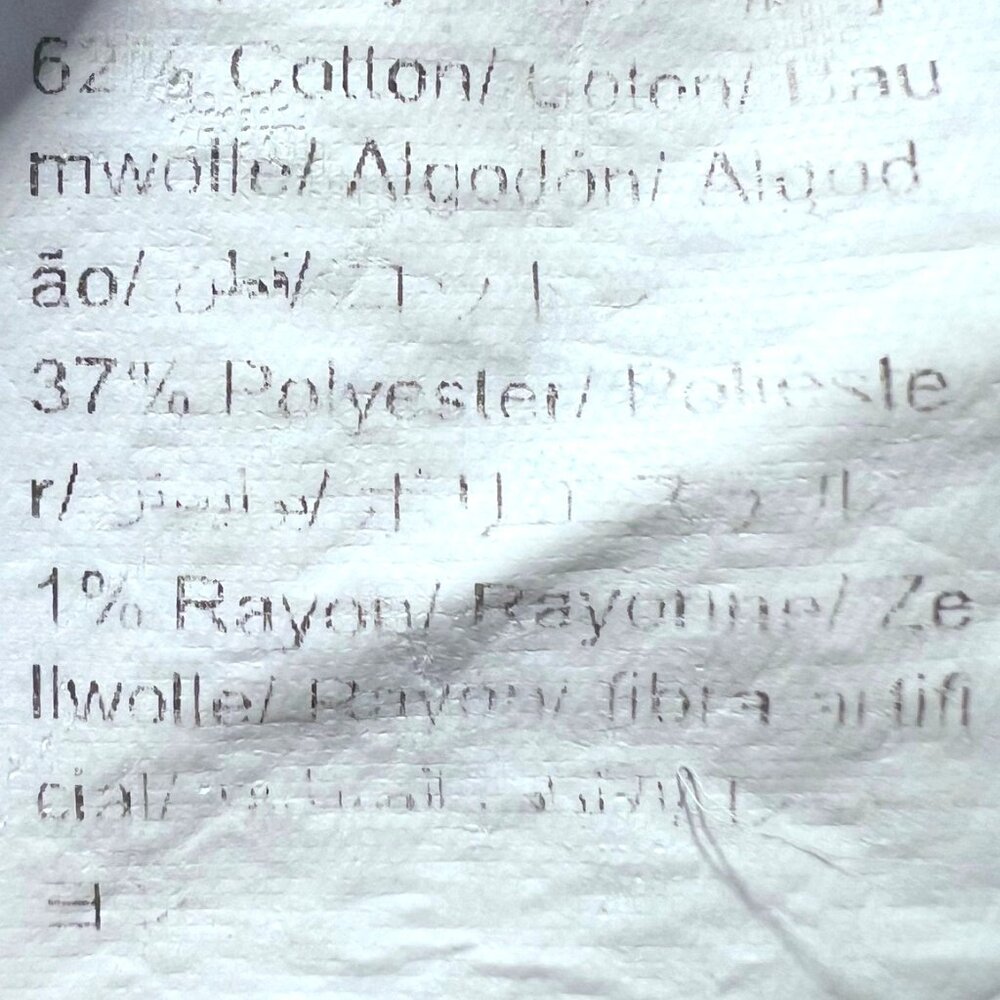 62% Cotton/ Coton/ Bau
mwolle/ Algodón/ Algod
ão/ قطن/
37% Polyester/ Polieste
r/
1% Rayon/ Rayonne/ Ze
llwolle/ Rayon/ fibra artifi
cial/